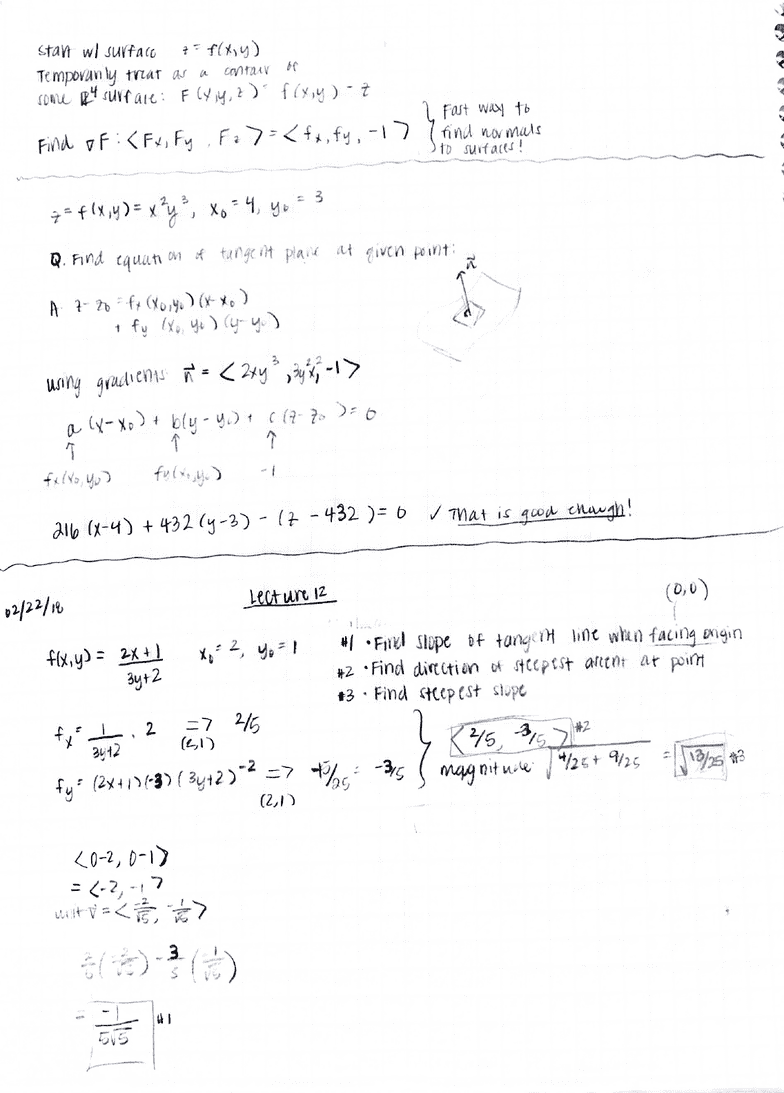 Start w/ surface z = f(x,y)
Temporarily treat as a contour of
some ℝ⁴ surface: F(x,y,z) = f(x,y) - z
Find ∇F: <Fx, Fy, Fz> = <fx, fy, -1> } Fast way to find normals to surfaces!
z = f(x,y) = x²y³, x₀ = 4, y₀ = 3
Q. Find equation of tangent plane at given point:
n⃗
A z - z₀ = fx(x₀,y₀)(x-x₀)
+ fy (x₀,y₀)(y-y₀)
using gradients n⃗ = <2xy³, 3y²x², -1>
a (x-x₀) + b(y-y₀) + c(z-z₀) = 0
↑ ↑ ↑
fx(x₀,y₀) fy(x₀,y₀) -1
216 (x-4) + 432 (y-3) - (z - 432) = 0 ✓ That is good enough!
Lecture 12
02/22/18
(0,0)
f(x,y) = (2x+1)/(3y+2) x₀ = 2, y₀ = 1
#1 • Find slope of tangent line when facing origin
#2 • Find direction of steepest ascent at point
#3 • Find steepest slope
fx = 1/(3y+2) · 2 => (2,1) 2/5
fy = (2x+1)(-3)(3y+2)⁻² => (2,1) -15/25 = -3/5
<2/5, -3/5> #2
magnitude √(4/25 + 9/25) = √(13/25) #3
<0-2, 0-1>
= <-2, -1>
unit v⃗ = <-2/√5, -1/√5>
2/5(-2/√5) - 3/5(-1/√5)
= -1/(5√5) #1